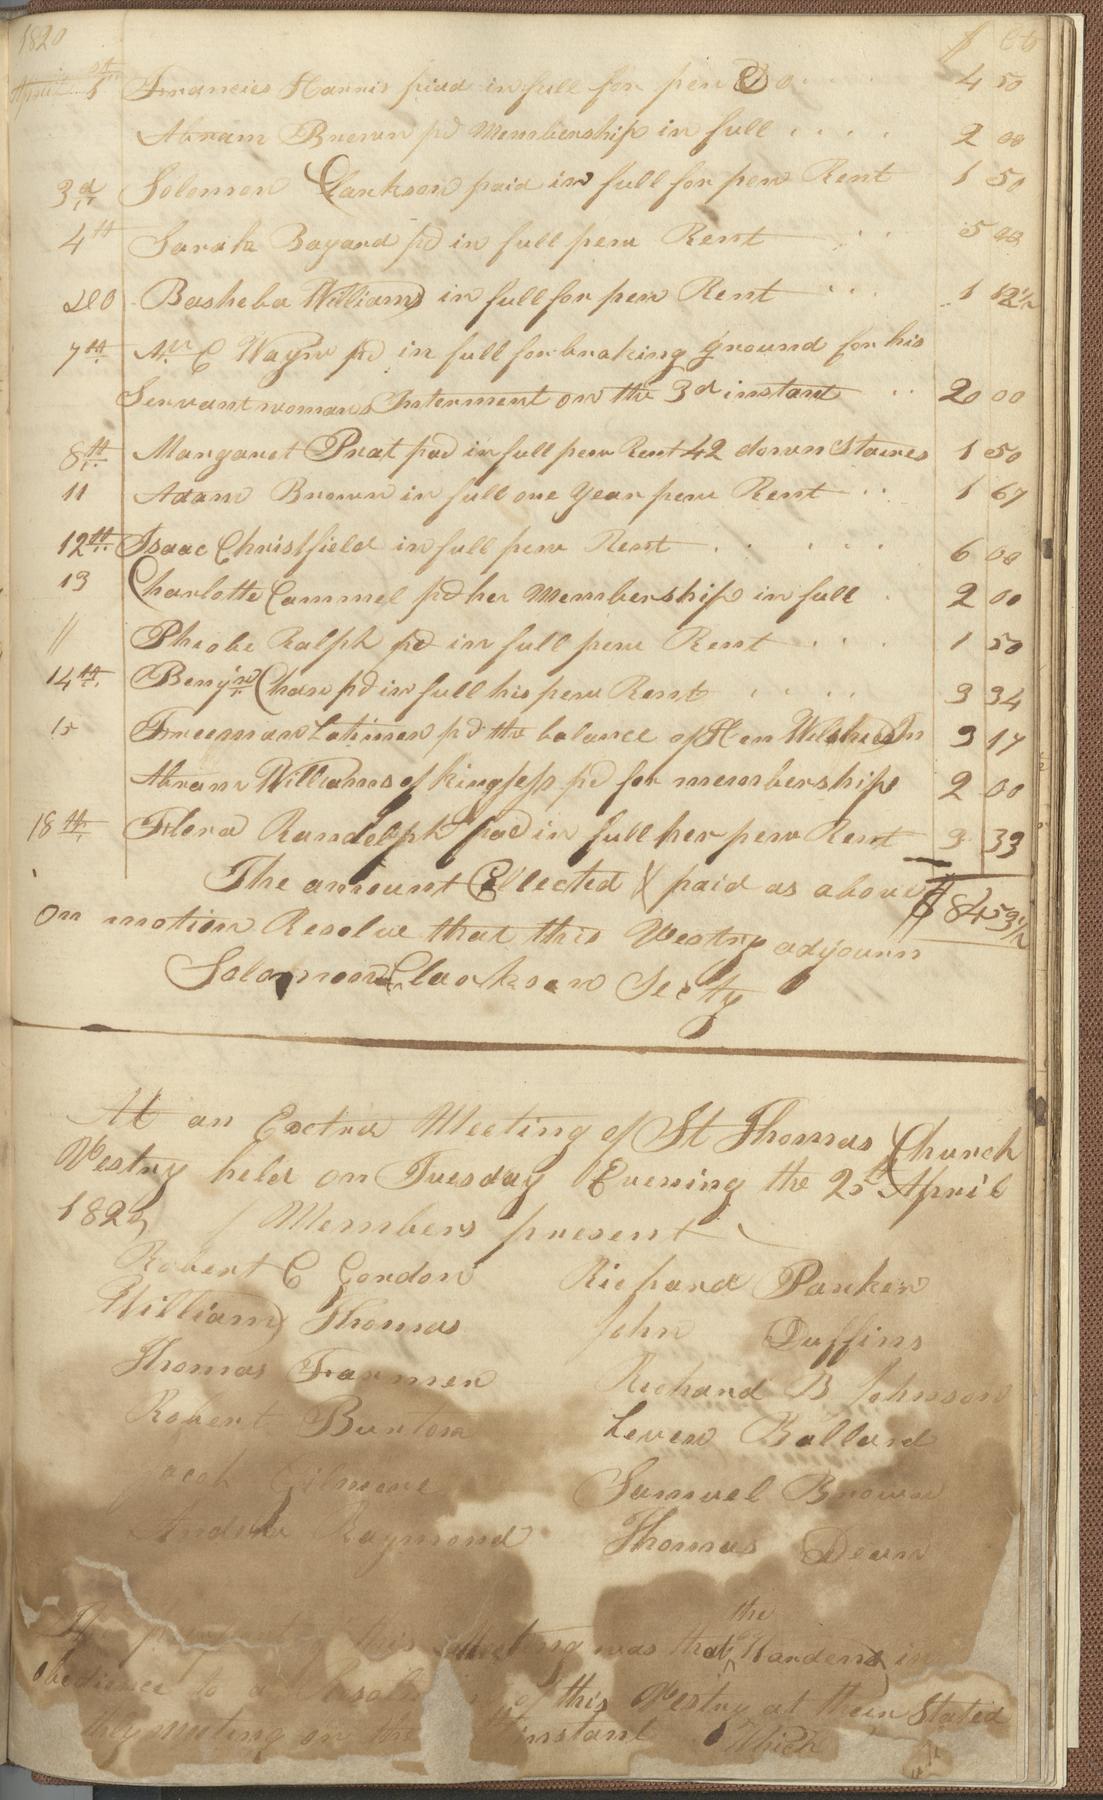 1820 $ Cts
April 1st Francies Harris piad in full for pew Do 4 50
Abram Brown pd Membership in full 2 00
3d Solomon Clarkson paid in full for pew Rent 1 50
4th Sarah Bayard pd in full pew Rent 5 00
do Basheba Williams in full for pew Rent 1 12½
7th Mr C Wayne pd in full for braking ground for his
Servant womans Interment on the 3d instant 20 00
8th Margaret Prat pad in full pew Rent 42 down Staires 1 50
11 Adam Brown in full one Year pew Rent 1 67
12th Isaac Christfield in full pew Rent 6 00
13 Charlotte Cammel pd her Membership in full 2 00
" Pheobe Ralph pd in full pew Rent 1 50
14th Benjn Chew pd in full his pew Rent 3 34
15 Freeman Latimer pd the balance of Hen 3 17
Abram Williams of kingsess pd for membership 2 00
18th Flora Randolph pad in full her pew Rent 3 33
The amount Collected & paid as above $84 53½
On motion Resolve that this Vestry adjourn
Solomon Clarkson Secty
At an Extra Meeting of St Thomas Church
Vestry held on Tuesday Evening the 25th April
1820 / Members present
Robert C Gordon Richard Parker
William Thomas John Duffins
Thomas Farmer Richard B Johnson
Robert Burton Leven Ballard
Jacob Gilmore Samuel Brown
Andrew Raymond Thomas Dean
the
The of this Meeting was that Wardens in
obedience to a of this Vestry at their Stated
meeting on the instant Which